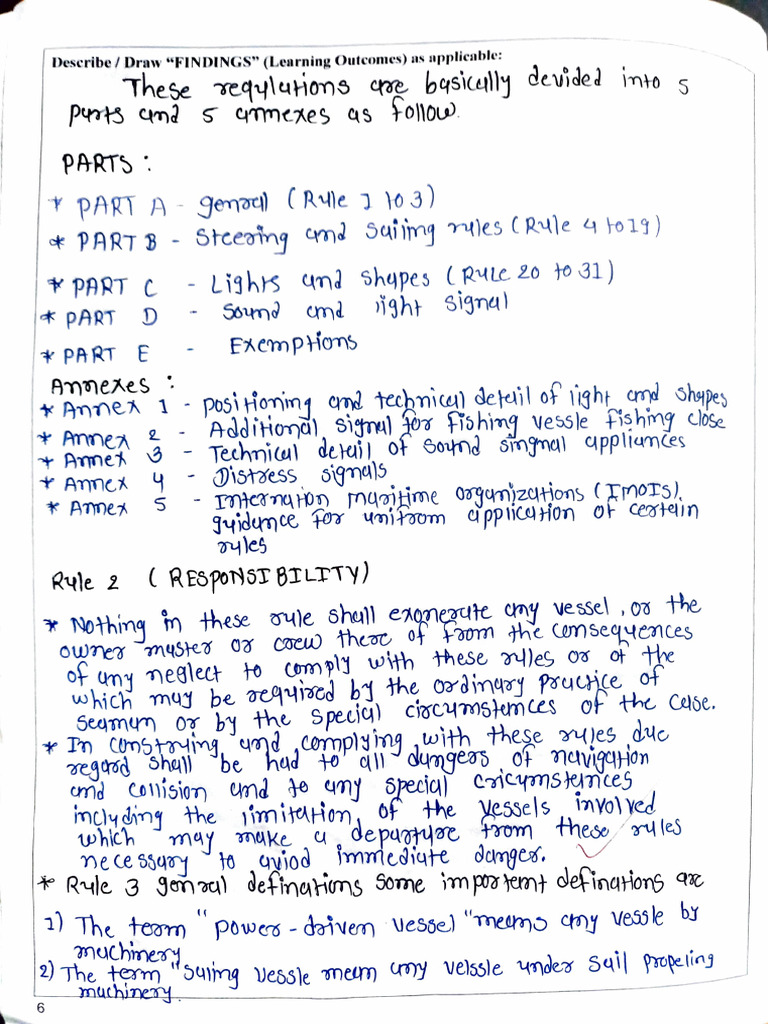 Describe / Draw "FINDINGS" (Learning Outcomes) as applicable:
These regulations are basically devided into 5
parts and 5 annexes as follow.
PARTS :
* PART A - genrall (Rule 1 to 3)
* PART B - Steering and sailing rules (Rule 4 to 19)
* PART C - Lights and shapes (Rule 20 to 31)
* PART D - Sound and light signal
* PART E - Exemptions
Annexes :
* Annex 1 - positioning and technical detail of light and shapes
* Annex 2 - Additional signal for fishing vessle fishing close
* Annex 3 - Technical detail of sound singnal appliances
* Annex 4 - Distress signals
* Annex 5 - Internation maritime organizations (IMOIS)
guidance for unifrom application of certain
rules
Rule 2 (RESPONSIBILITY)
* Nothing in these rule shall exonerate any vessel, or the
owner master or crew there of from the consequences
of any neglect to comply with these rules or of the
which may be required by the ordinary practice of
seaman or by the special circumstances of the case.
* In construing and complying with these rules due
regard shall be had to all dangers of navigation
and collision and to any special cricumstances
including the limitation, of the vessels involved
which may make a departure from these rules
necessary to aviod immediate danger.
* Rule 3 genral definations some important definations are
1) The term "power-driven vessel" means any vessle by
machinery
2) The term "sailing vessle mean any velssle under sail propeling
machinery.
6